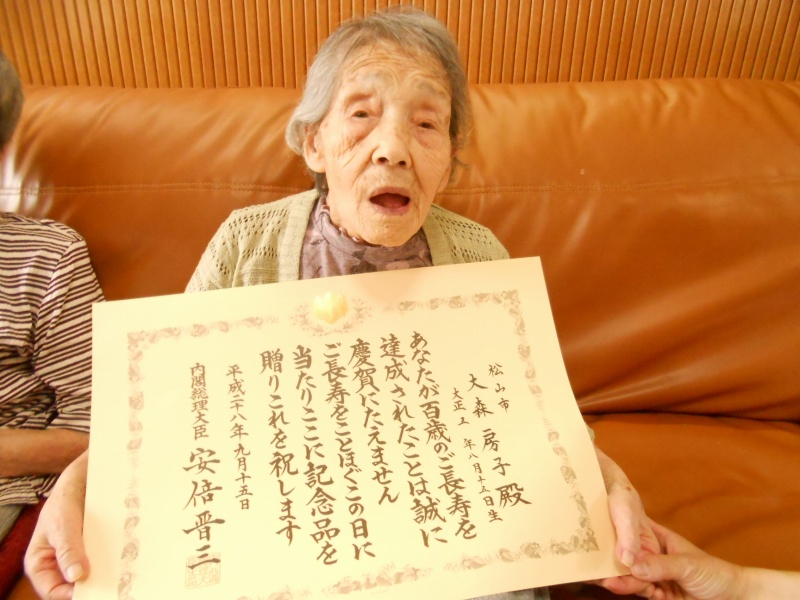 松山市
大森 房子 殿
大正五 年八月十五日生
あなたが百歳のご長寿を
達成されたことは誠に
慶賀にたえません
ご長寿をことほぐこの日に
当たりここに記念品を
贈りこれを祝します
平成二八年九月十五日
内閣総理大臣 安倍晋三